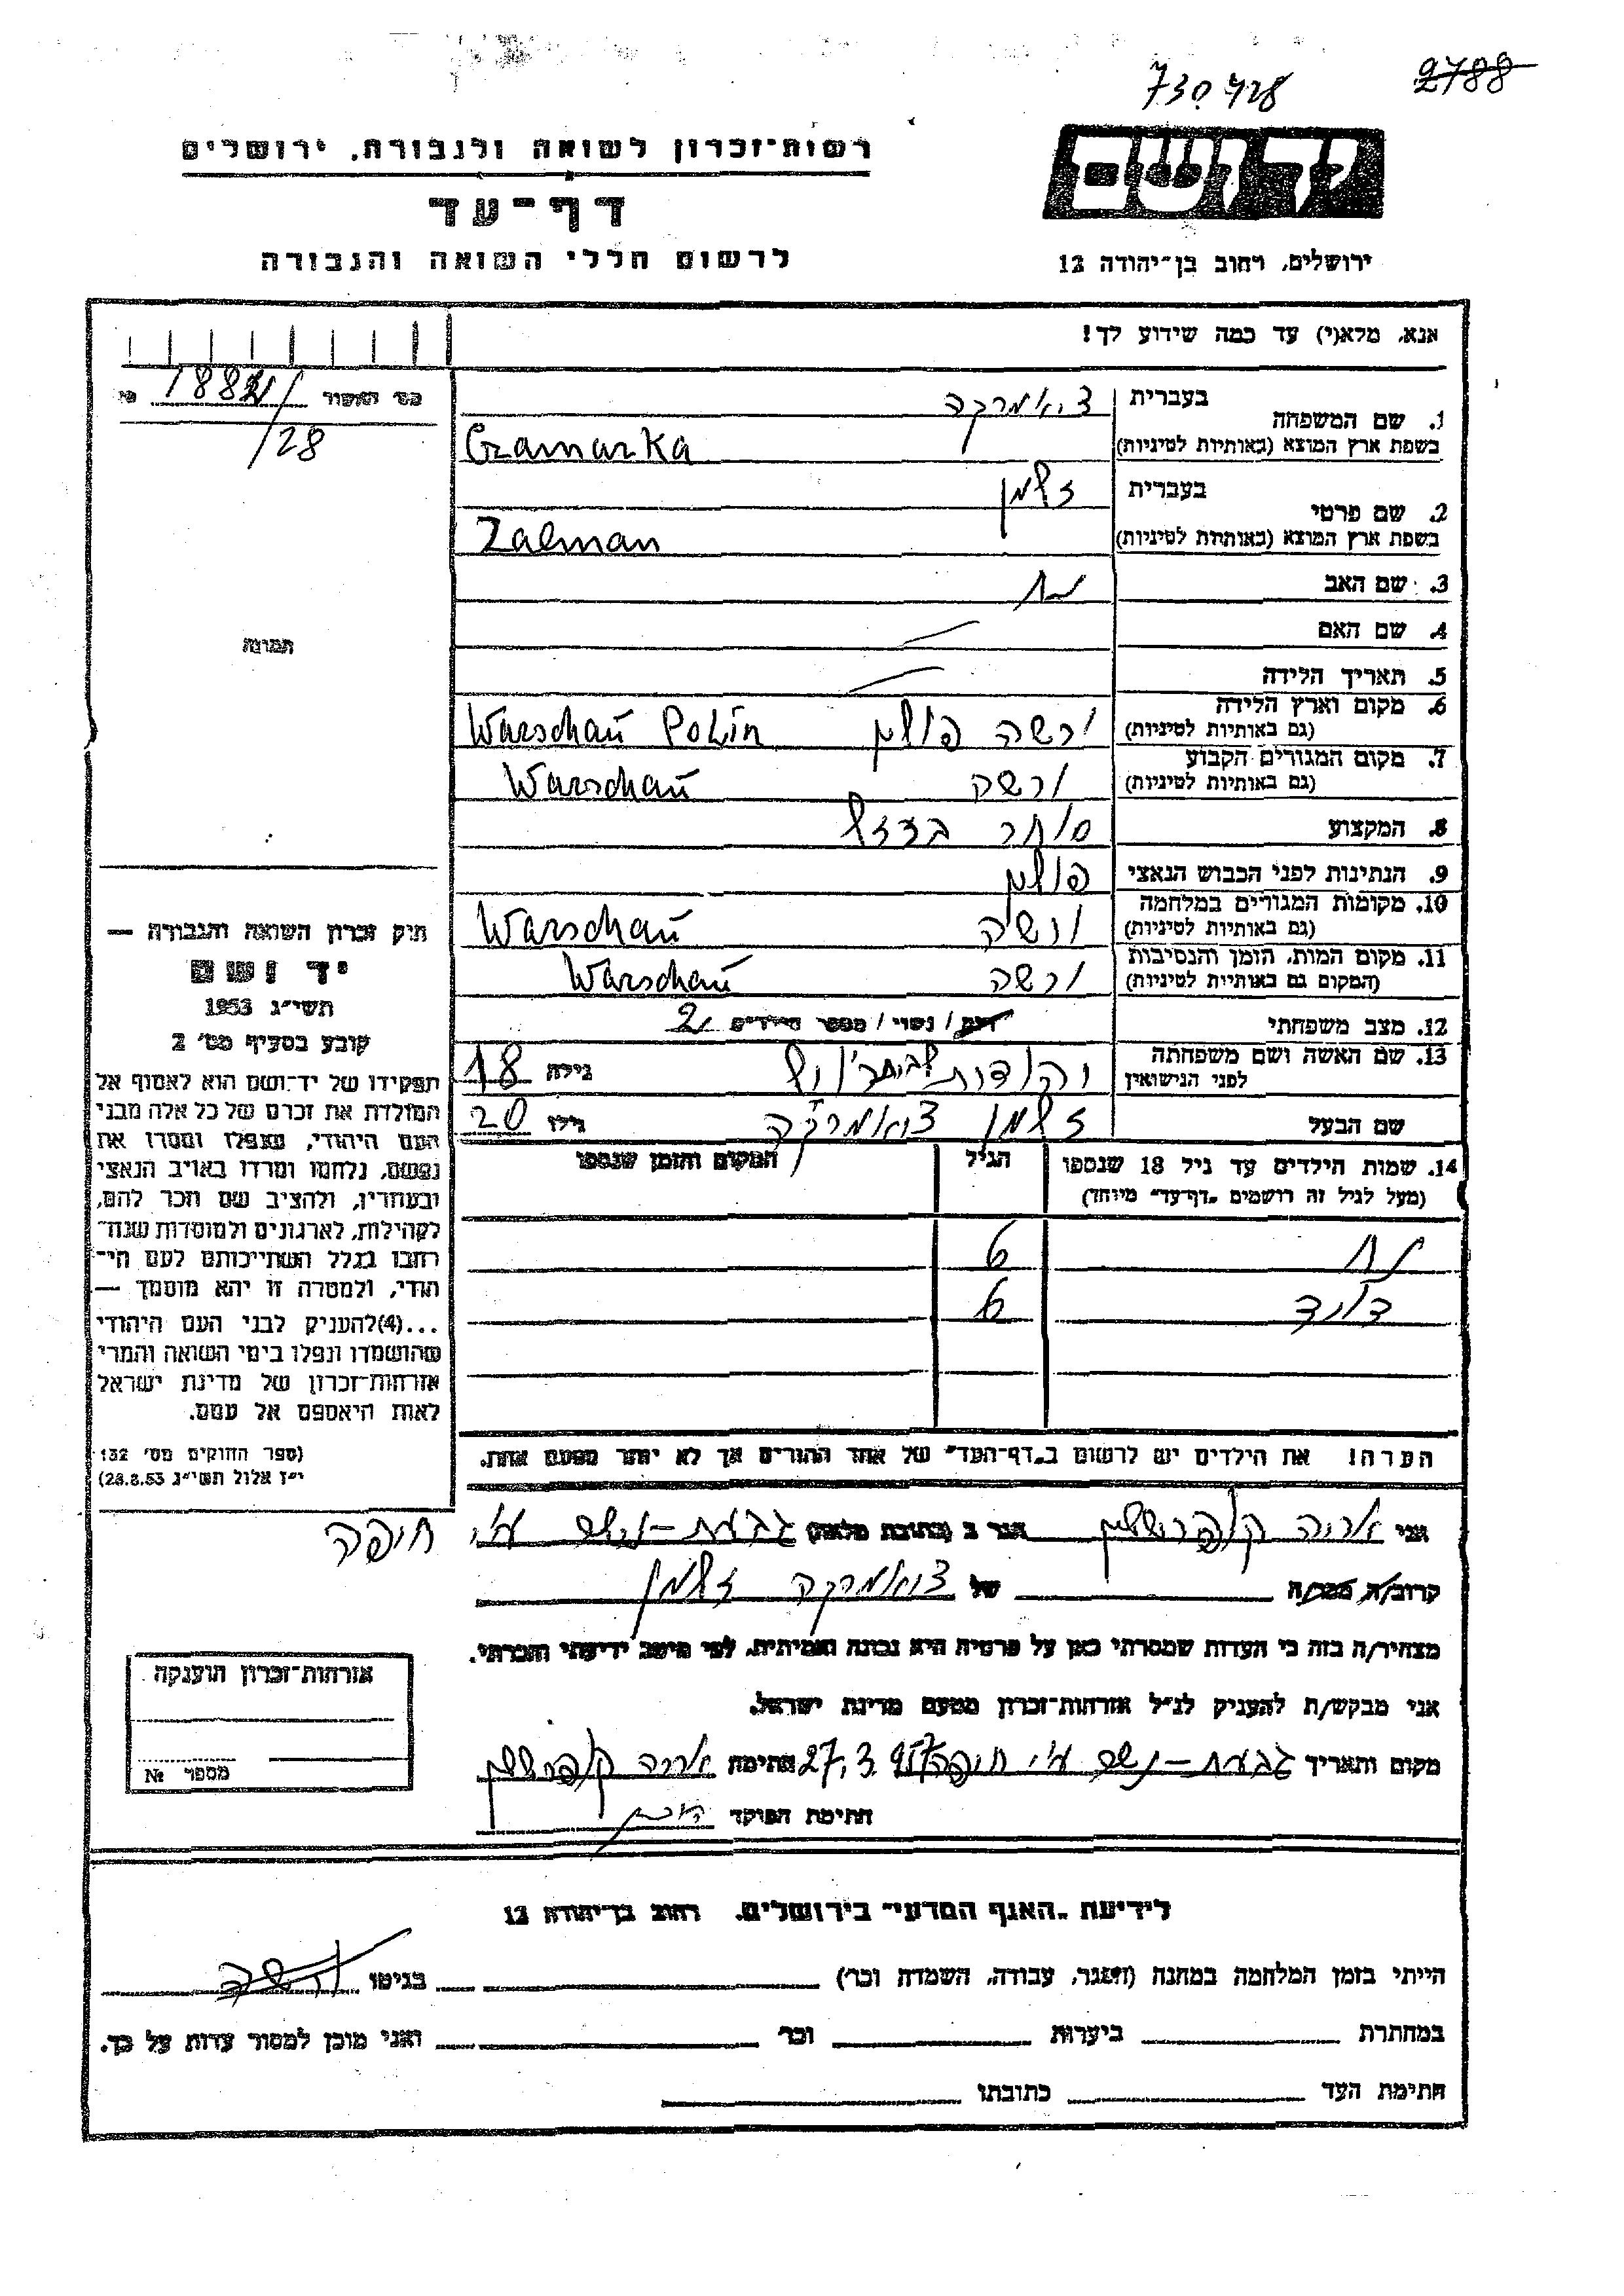 730428
2788
יד ושם
ירושלים, רחוב בן־יהודה 12
רשות־זכרון לשואה ולגבורה, ירושלים
דף־עד
לרשום חללי השואה והגבורה
אנא, מלא(י) עד כמה שידוע לך!
בעברית
1. שם המשפחה
בשפת ארץ המוצא (באותיות לטיניות)
Czamarka
בעברית זלמן
2. שם פרטי
בשפת ארץ המוצא (באותיות לטיניות)
Zalman
3. שם האב
4. שם האם
5. תאריך הלידה
6. מקום וארץ הלידה
(גם באותיות לטיניות) ורשה פולין Warschau Polin
7. מקום המגורים הקבוע
(גם באותיות לטיניות) ורשה Warschau
8. המקצוע סוחר
9. הנתינות לפני הכבוש הנאצי פולין
10. מקומות המגורים במלחמה
(גם באותיות לטיניות) ורשה Warschau
11. מקום המות, הזמן והנסיבות
(המקום גם באותיות לטיניות) ורשה Warschau
12. מצב משפחתי רווק / נשוי / מספר הילדים 2
13. שם האשה ושם משפחתה
לפני הנישואין
גילה 18
שם הבעל זלמן גילו 20
14. שמות הילדים עד גיל 18 שנספו
(מעל לגיל זה רושמים „דף־עד" מיוחד)
הגיל
המקום והזמן שנספו
6
דוד 6
הערה! את הילדים יש לרשום ב„דף־העד" של אחד ההורים אך לא יותר מפעם אחת.
מס' האשור 1882 №
/28
תמונה
חוק זכרון השואה והגבורה —
יד ושם
תשי"ג 1953
קובע בסעיף מס' 2
תפקידו של יד־ושם הוא לאסוף אל
המולדת את זכרם של כל אלה מבני
העם היהודי, שנפלו ומסרו את
נפשם, נלחמו ומרדו באויב הנאצי
ובעוזריו, ולהציב שם וזכר להם,
לקהילות, לארגונים ולמוסדות שנח־
רבו בגלל השתייכותם לעם הי־
הודי, ולמטרה זו יהא מוסמך —
...(4)להעניק לבני העם היהודי
שהושמדו ונפלו בימי השואה והמרי
אזרחות־זכרון של מדינת ישראל
לאות היאספם אל עמם.
(ספר החוקים מס' 132
י"ז אלול תשי"ג 28.8.53)
אני אריה הגר ב (כתובת מלאה) גבעת־נשר ע"י חיפה
קרוב/ה מכר/ה של זלמן
מצהיר/ה בזה כי העדות שמסרתי כאן על פרטיה היא נכונה ואמיתית, לפי מיטב ידיעתי והכרתי.
אני מבקש/ת להעניק לנ"ל אזרחות־זכרון מטעם מדינת ישראל.
מקום ותאריך גבעת־נשר ע"י חיפה 27.3.957 חתימה אריה
חתימת הפוקד
אזרחות־זכרון הוענקה
מספר №
לידיעת „האגף המדעי" בירושלים, רחוב בן־יהודה 12
הייתי בזמן המלחמה במחנה (הסגר, עבודה, השמדה וכו') בגיטו ורשה
במחתרת ביערות וכו' ואני מוכן למסור עדות על כך.
חתימת העד כתובתו